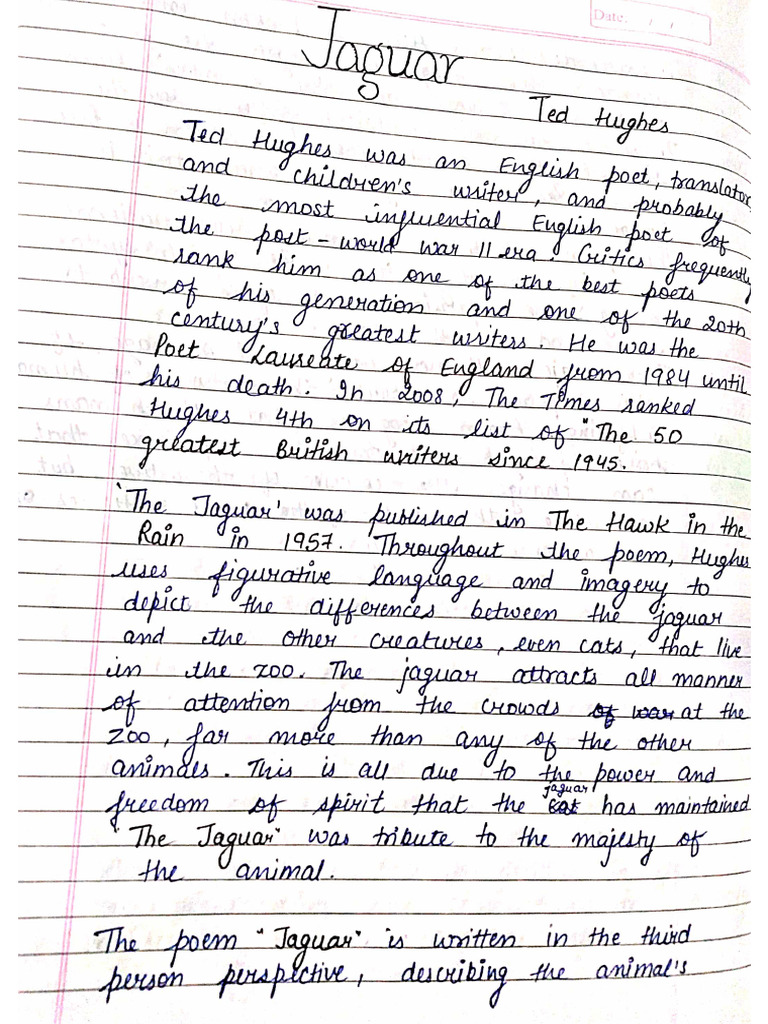 Date: / /
Jaguar
Ted Hughes
Ted Hughes was an English poet, translator,
and children's writer, and probably
the most influential English poet of
the post-world war II era. Critics frequently
rank him as one of the best poets
of his generation and one of the 20th
century's greatest writers. He was the
Poet Laureate of England from 1984 until
his death. In 2008, The Times ranked
Hughes 4th on its list of "The 50
greatest British writers since 1945.
'The Jaguar' was published in The Hawk in the
Rain in 1957. Throughout the poem, Hughes
uses figurative language and imagery to
depict the differences between the jaguar
and the other creatures, even cats, that live
in the zoo. The jaguar attracts all manner
of attention from the crowds of war at the
zoo, far more than any of the other
animals. This is all due to the power and
freedom of spirit that the cat jaguar has maintained
"The Jaguar" was tribute to the majesty of
the animal.
The poem "Jaguar" is written in the third
person perspective, describing the animal's